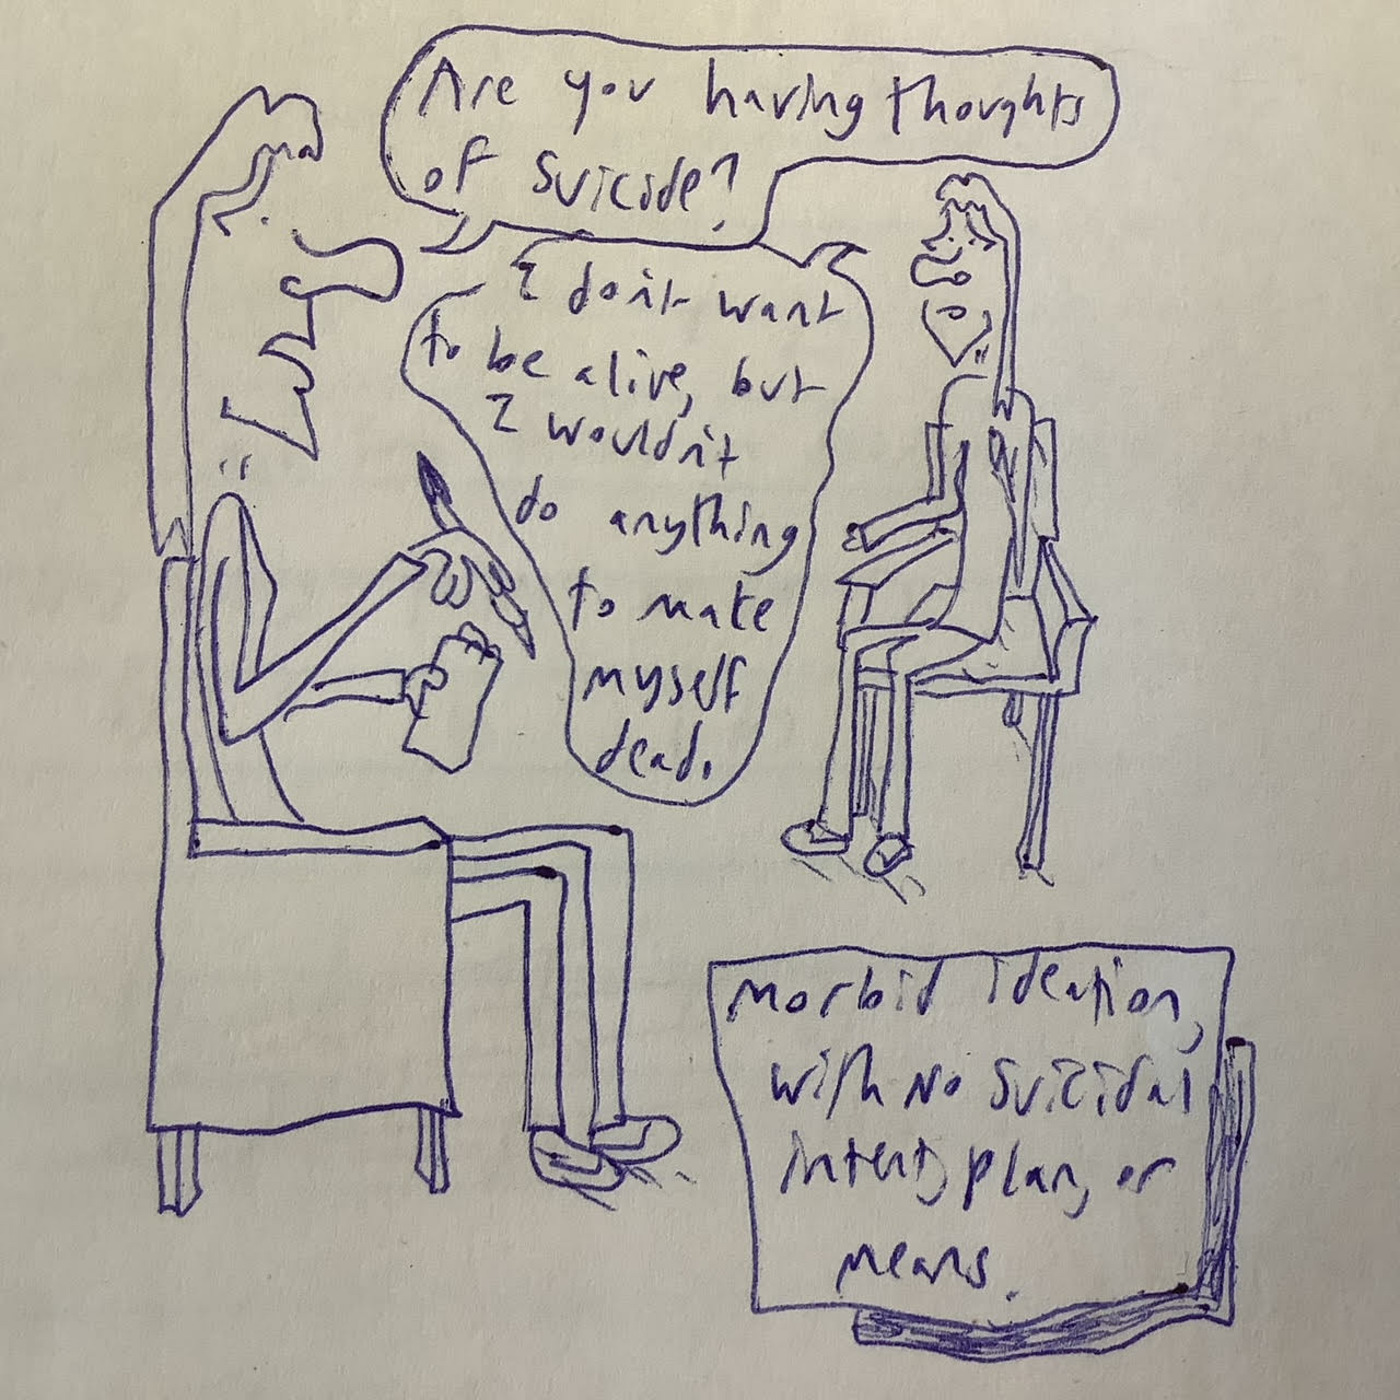 Are you having thoughts
of suicide?
I don't want
to be alive, but
I wouldn't
do anything
to make
myself
dead.
morbid ideation,
with no suicidal
intent, plan, or
means.